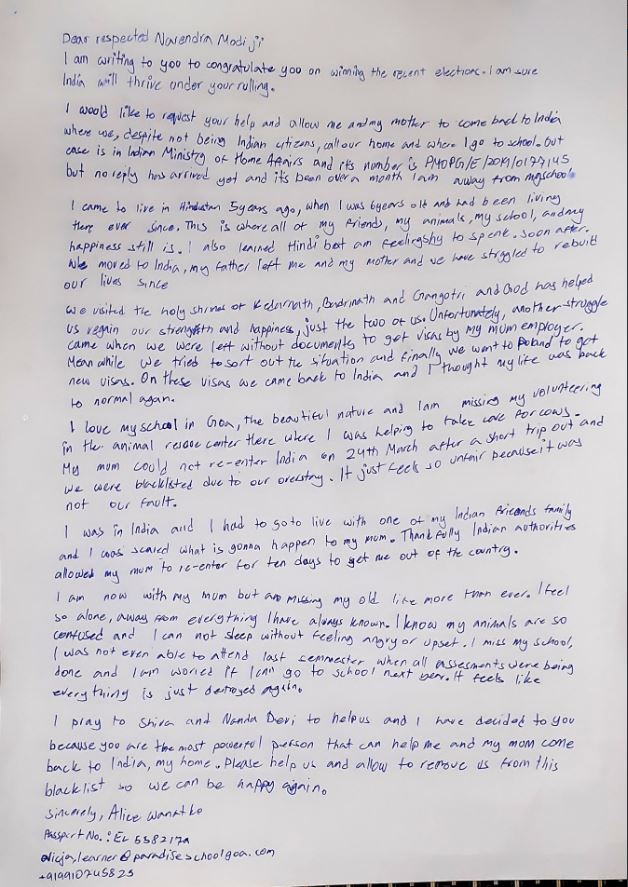 Dear respected Narendra Modi ji
I am writing to you to congratulate you on winning the recent elections. I am sure
India will thrive under your rulling.
I would like to request your help and allow me and my mother to come back to India
where we, despite not being Indian citizens, call our home and where I go to school. Our
case is in Indian Ministry of Home Affairs and its number is PMOPG/E/2019/0177145
but no reply has arrived yet and its been over a month I am away from my school.
I came to live in Hindustan 5 years ago, when I was 6 years old and had been living
there ever since. This is where all of my friends, my animals, my school, and my
happiness still is. I also learned Hindi but am feeling shy to speak. Soon after.
We moved to India, my father left me and my mother and we have struggled to rebuilt
our lives since
We visited the holy shrines of Kedarnath, Badrinath and Gangotri and God has helped
us regain our strength and happiness, just the two of us. Unfortunately, another struggle
came when we were left without documents to get visas by my mum employer.
Mean while we tried to sort out the situation and finally we went to Poland to get
new visas. On these visas we came back to India and I thought my life was back
to normal again.
I love my school in Goa, the beautiful nature and I am missing my volunteering
in the animal rescue center there where I was helping to take care for cows.
My mum could not re-enter India on 24th March after a short trip out and
we were blacklisted due to our overstay. It just feels so unfair because it was
not our fault.
I was in India and I had to go to live with one of my Indian friends family
and I was scared what is gonna happen to my mum. Thankfully Indian authorities
allowed my mum to re-enter for ten days to get me out of the country.
I am now with my mum but am missing my old life more than ever. I feel
so alone, away from everything I have always known. I know my animals are so
confused and I can not sleep without feeling angry or upset. I miss my school,
I was not even able to attend last semmester when all assesments were being
done and I am woried if I can go to school next year. It feels like
everything is just destroyed again.
I pray to Shiva and Nanda Devi to help us and I have decided to you
because you are the most powerful person that can help me and my mom come
back to India, my home. Please help us and allow to remove us from this
blacklist so we can be happy again.
Sincerely, Alice Wanatko
Passport No.: EL 5582172
alicja.learner@paradiseschoolgoa.com
+919910745825